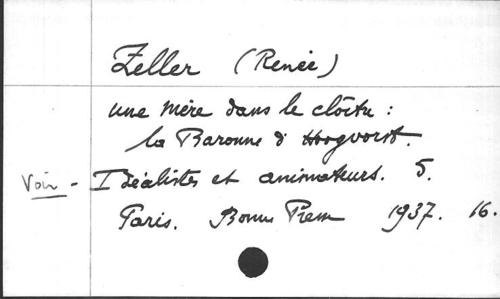 Zeller (Renée)
une mère dans le cloître :
la Baronne d'Hoogvorst.
Voir - Idéalistes et animateurs. 5.
Paris. Bonne Presse 1937. 16.